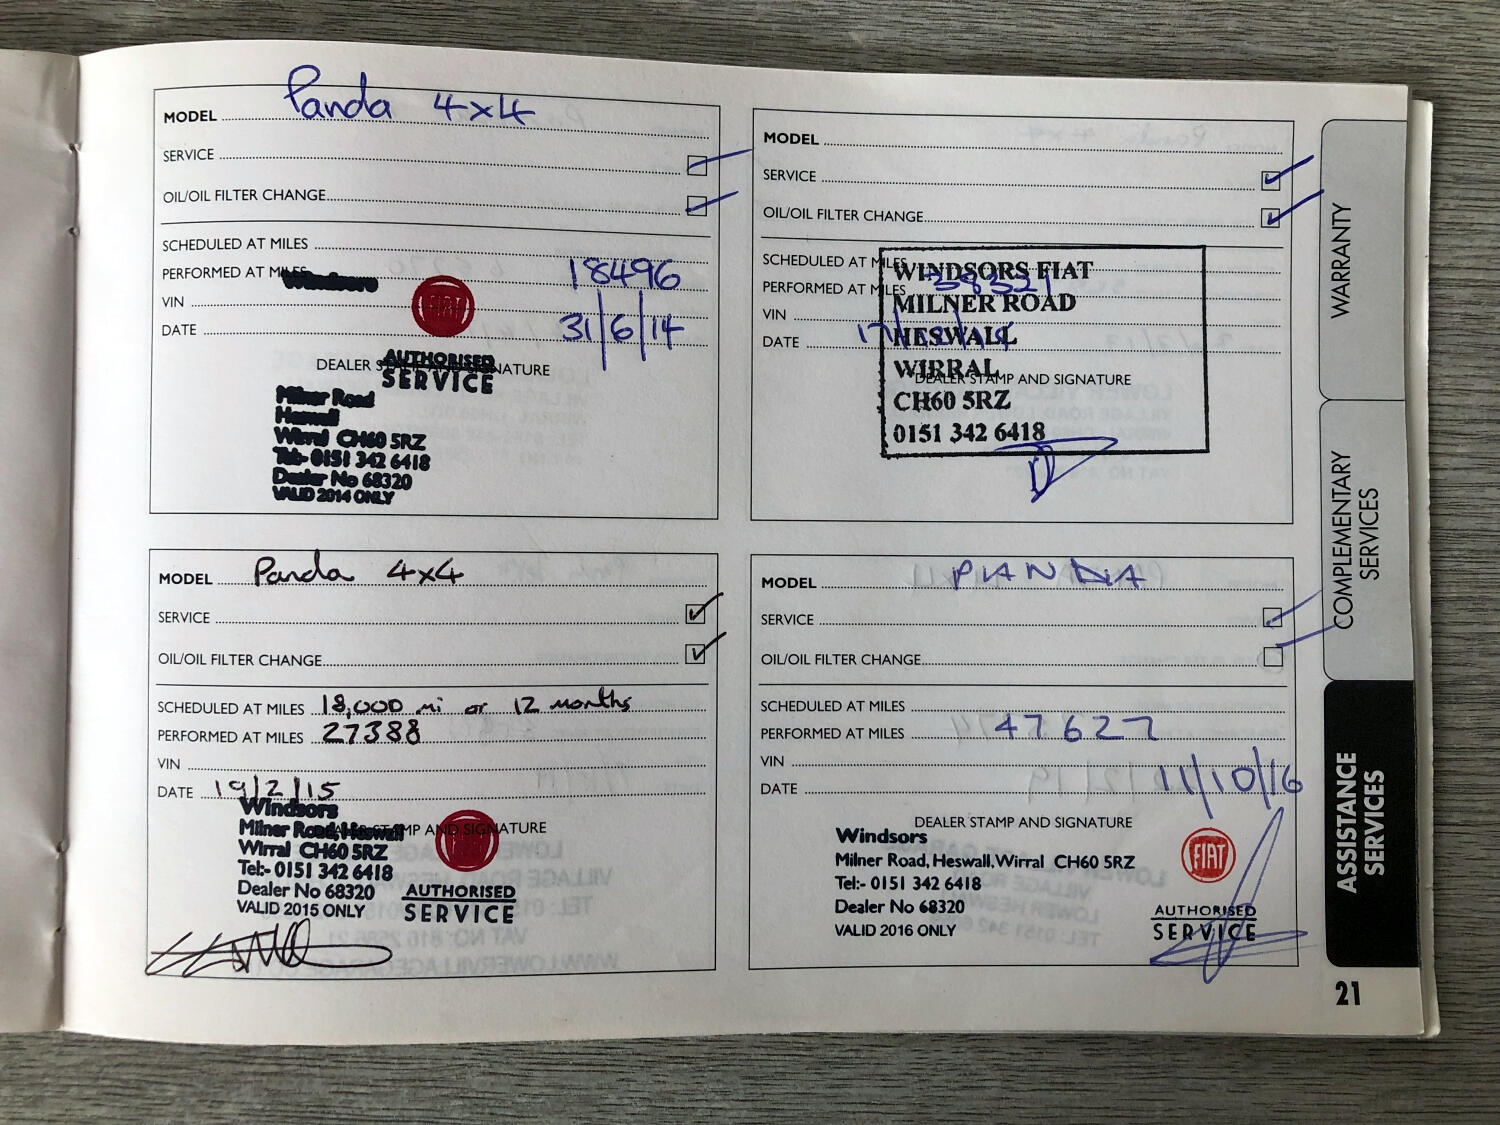 MODEL Panda 4x4
SERVICE
OIL/OIL FILTER CHANGE
SCHEDULED AT MILES
PERFORMED AT MILES 18496
Windsors
VIN
FIAT
DATE 31/6/14
DEALER STAMP AND SIGNATURE
AUTHORISED
SERVICE
Milner Road
Heswall
Wirral CH60 5RZ
Tel:- 0151 342 6418
Dealer No 68320
VALID 2014 ONLY
MODEL
SERVICE
OIL/OIL FILTER CHANGE
SCHEDULED AT MILES
PERFORMED AT MILES 38321
VIN
DATE
DEALER STAMP AND SIGNATURE
WINDSORS FIAT
MILNER ROAD
HESWALL
WIRRAL
CH60 5RZ
0151 342 6418
MODEL Panda 4x4
SERVICE
OIL/OIL FILTER CHANGE
SCHEDULED AT MILES 18,000 mi or 12 months
PERFORMED AT MILES 27388
VIN
DATE 19/2/15
DEALER STAMP AND SIGNATURE
Windsors
Milner Road, Heswall
Wirral CH60 5RZ
Tel:- 0151 342 6418
Dealer No 68320
VALID 2015 ONLY
FIAT
AUTHORISED
SERVICE
MODEL PANDA
SERVICE
OIL/OIL FILTER CHANGE
SCHEDULED AT MILES
PERFORMED AT MILES 47627
VIN
DATE 11/10/16
DEALER STAMP AND SIGNATURE
Windsors
Milner Road, Heswall, Wirral CH60 5RZ
Tel:- 0151 342 6418
Dealer No 68320
VALID 2016 ONLY
FIAT
AUTHORISED
SERVICE
WARRANTY
COMPLEMENTARY
SERVICES
ASSISTANCE
SERVICES
21